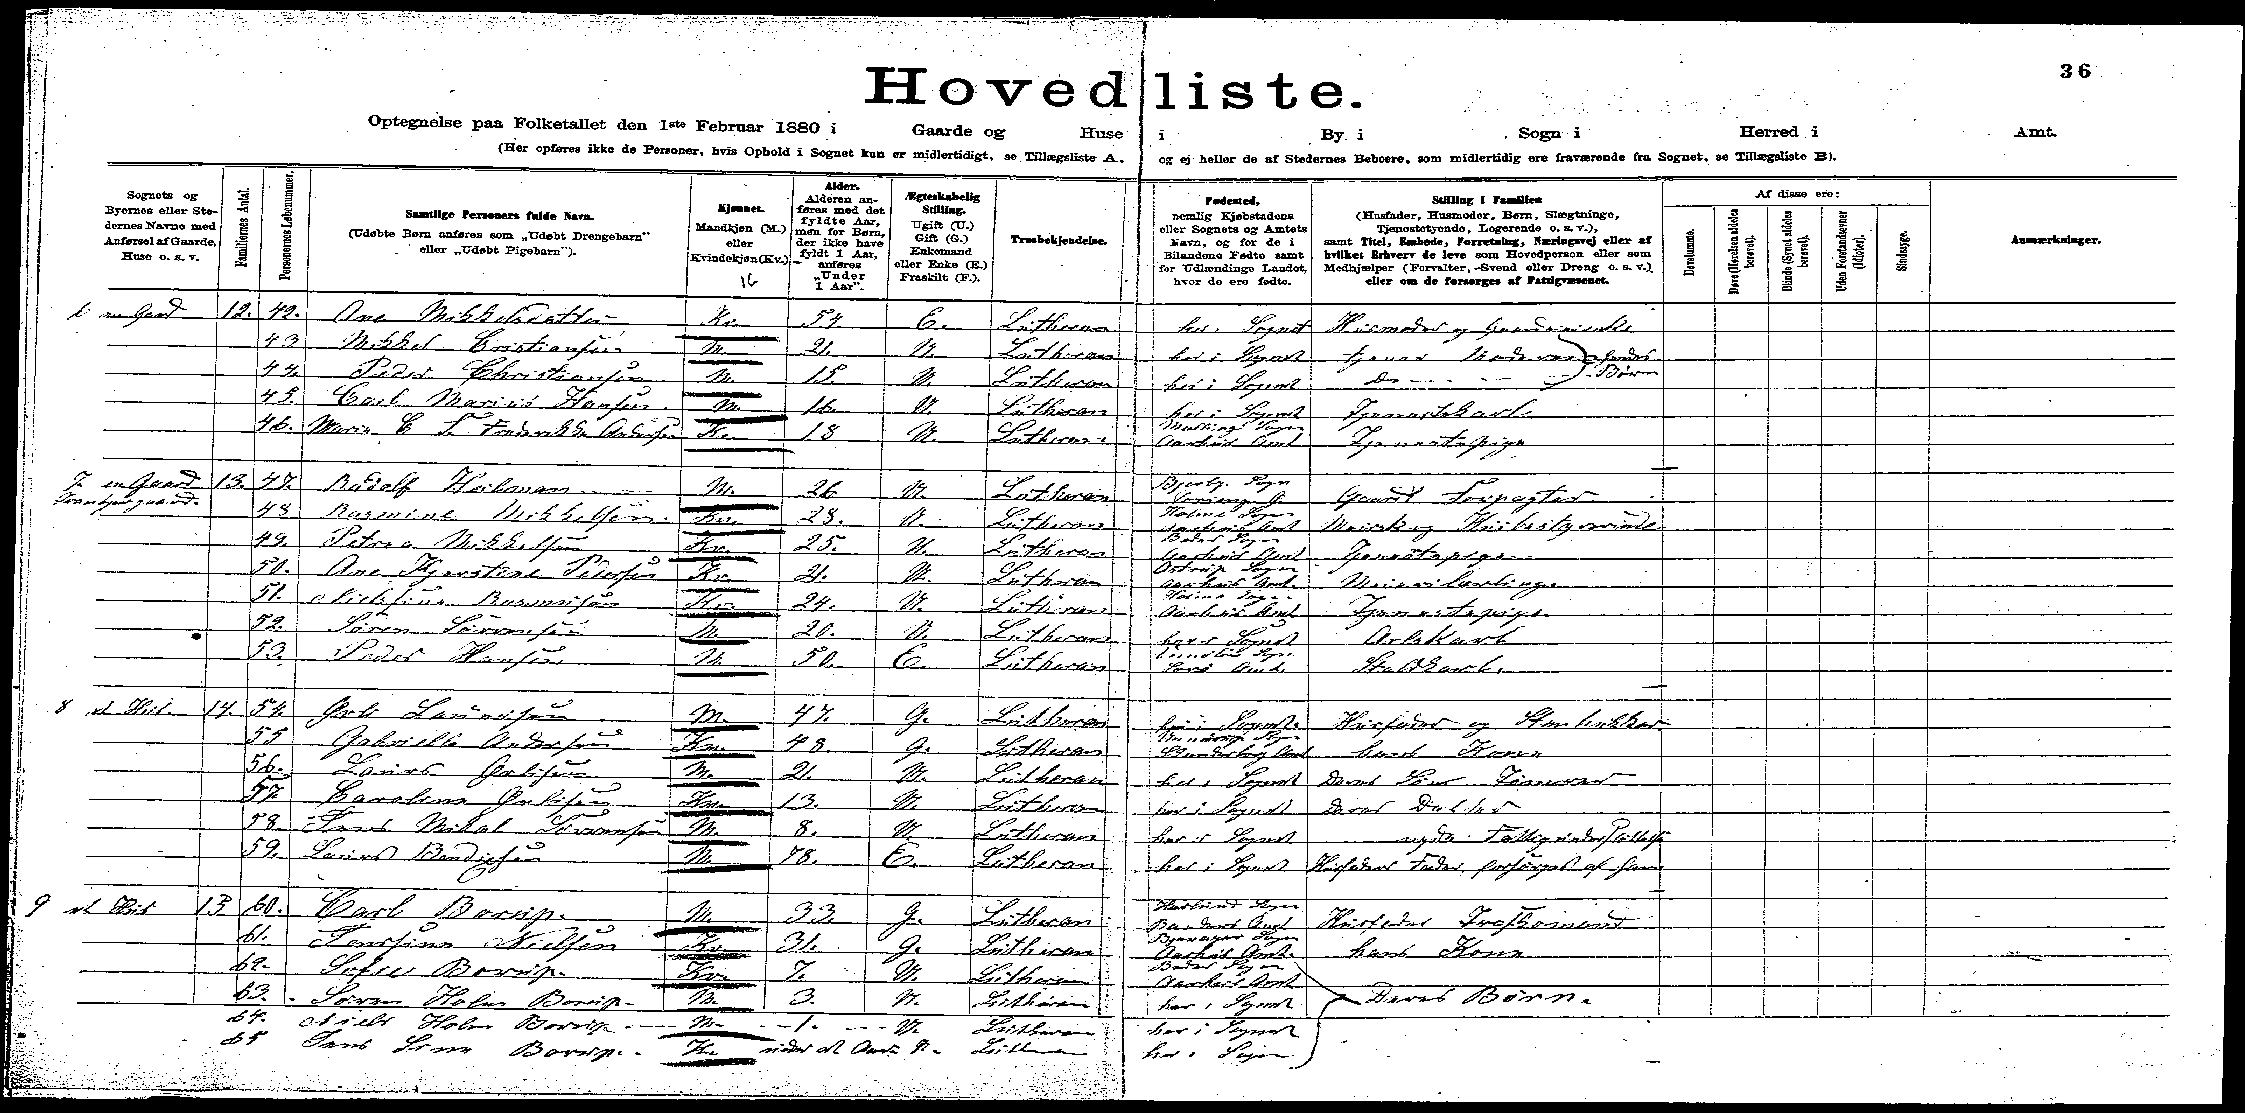 36
Hovedliste.
Optegnelse paa Folketallet den 1ste Februar 1880 i Gaarde og Huse i By i Sogn i Herred i Amt.
(Her opføres ikke de Personer, hvis Ophold i Sognet kun er midlertidigt, se Tillægsliste A, og ej heller de af Stedernes Beboere, som midlertidig ere fraværende fra Sognet, se Tillægsliste B).
Sognets og Byernes eller Stedernes Navne med Anførsel af Gaarde, Huse o. s. v.
Familiernes Antal.
Personernes Løbenummer.
Samtlige Personers fulde Navn.
(Udøbte Børn anføres som „Udøbt Drengebarn" eller „Udøbt Pigebarn").
Kjønnet.
Mandkjøn (M.) eller Kvindekjøn (Kv.)
16
Alder.
Alderen anføres med det fyldte Aar, men for Børn, der ikke have fyldt 1 Aar, anføres „Under 1 Aar".
Ægteskabelig Stilling.
Ugift (U.) Gift (G.) Enkemand eller Enke (E.) Fraskilt (F.).
Troesbekjendelse.
Fødested,
nemlig Kjøbstadens eller Sognets og Amtets Navn, og for de i Bilandene Fødte samt for Udlændinge Landet, hvor de ere fødte.
Stilling i Familien
(Husfader, Husmoder, Børn, Slægtninge, Tjenestetyende, Logerende o. s. v.), samt Titel, Embede, Forretning, Næringsvej eller af hvilket Erhverv de leve som Hovedperson eller som Medhjælper (Forvalter, -Svend eller Dreng o. s. v.), eller om de forsørges af Fattigvæsenet.
Af disse ere:
Døvstumme.
Døve (Hørelsen aldeles berøvet).
Blinde (Synet aldeles berøvet).
Uden Forstandsevner (Idioter).
Sindssyge.
Anmærkninger.
en Gaard 12. 42. Ane Mikkelsdatter Kv. 54 E. Lutheran her i Sognet Husmoder og
43 Mikkel Cristiansen M. 21. U. Lutheran her i Sognet tjener Moderen hendes
44. Peder Christiansen M. 15. U. Lutheran her i Sognet do Børn
45. Carl Marius Hansen M. 16. U. Lutheran her i Sognet Tjenestekarl
46. Maren C F. Frederikke Andersen Kv. 18 U. Lutheran Malling Sogn Aarhus Amt Tjenestepige
7. en Gaard 13. 47. Rudolf M. 26 U. Lutheran Sogn Gaard Forpagter
48. Rasmine Mikkelsen Kv. 28. U. Lutheran Holme Sogn Aarhus Amt Meiersk og Husbestyrerinde
49. Petrea Mikkelsen Kv. 25. U. Lutheran Beder Sogn Aarhus Amt Tjenestepige
50. Ane Kjerstine Pedersen Kv. 21. U. Lutheran Sogn Aarhus Amt Meierilærlinge
51. Nielsine Rasmusen Kv. 24. U. Lutheran Holme Sogn Aarhus Amt Tjenestepige
52. Sören Sörensen M. 20. U. Lutheran her i Sognet Avlskarl
53. Peder Hansen M. 50. E. Lutheran Sogn Sorö Amt Staldkarl
8 et Hus. 14. 54. Laursen M. 47. G. Lutheran her i Sognet Husfader og Stenhukker
55 Gabrielle Andersen Kv. 48. G. Lutheran Sogn Skanderborg Amt hans Kone
56. Laurs M. 21. U. Lutheran her i Sognet Deres Sön Tömrer
57 Caroline Kv. 13. U. Lutheran her i Sognet deres Datter
58. Jens Mikal Sörensen M. 8. U. Lutheran her i Sognet nyder Fattigunderstöttelse
59. Laurs M. 78. E. Lutheran her i Sognet Husfaders Fader forsörget af ham
9 et Hus 15 60. Carl Borup. M. 33 G. Lutheran Sogn Randers Amt Husfader Træskomand
61. Jensine Nielsen Kv. 31. G. Lutheran Sogn Aarhus Amt. hans Kone
62. Sofie Borup. Kv. 7. U. Lutheran Beder Sogn Aarhus Amt
63. Sören Holm Borup M. 3. U. Lutheran her i Sognet Deres Börn.
64. Niels Holm Borup. M. 1. U. Lutheran her i Sognet
65 Borup. Kv. under et Aar U. Lutheran her i Sogn